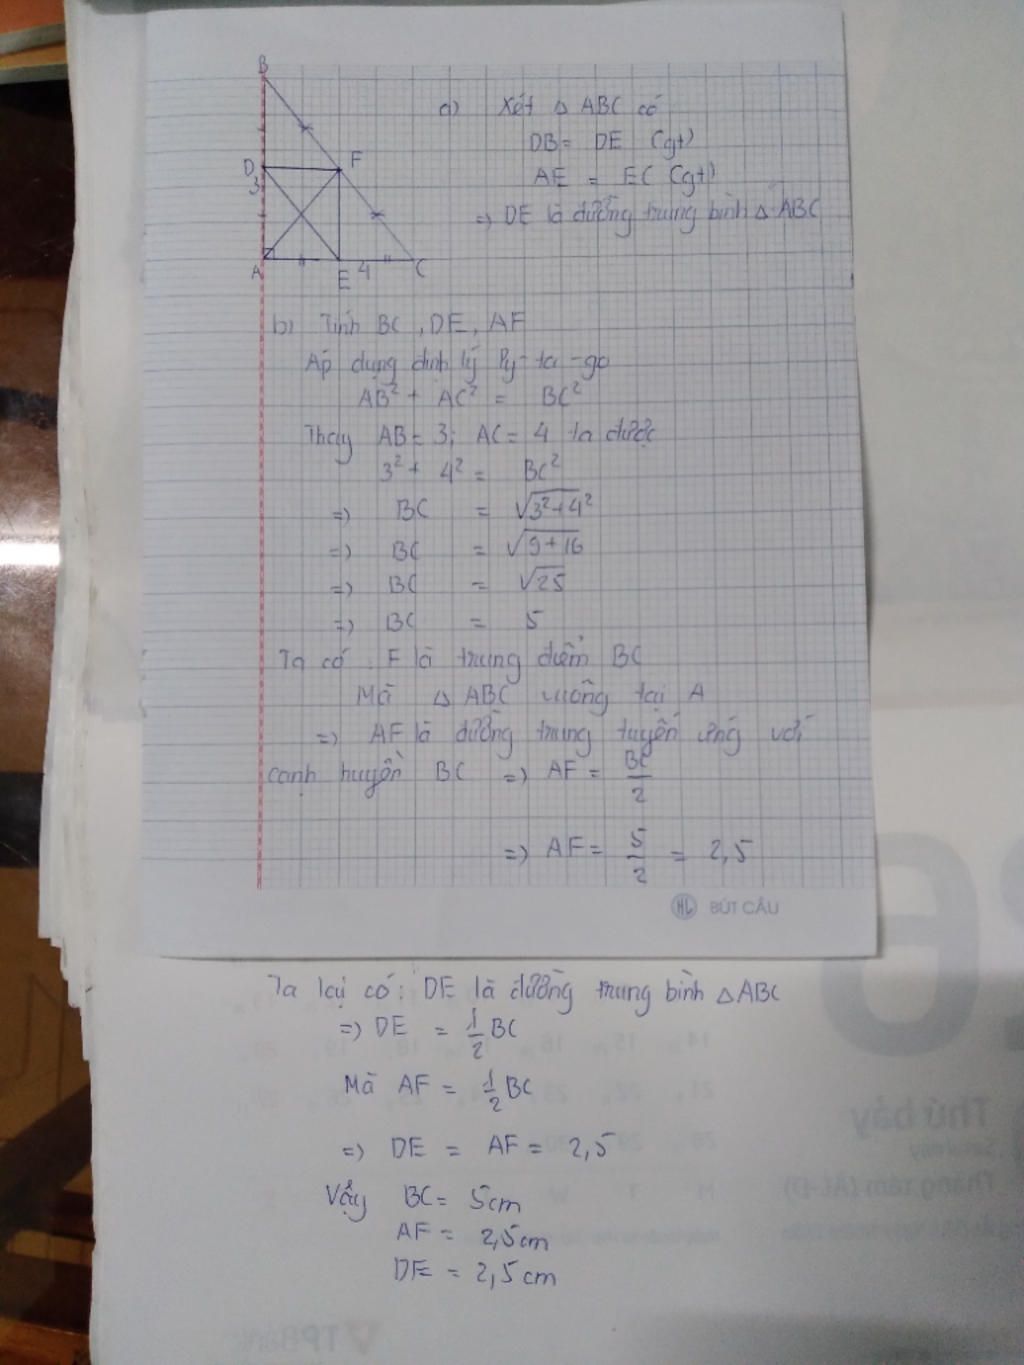 B
a) Xét △ ABC có
DB = DE (gt)
D F
3
AE = EC (gt)
=> DE là đường trung bình △ ABC
A E 4 C
b) Tính BC, DE, AF
Áp dụng định lý Py-ta-go
AB² + AC² = BC²
Thay AB = 3; AC = 4 ta được
3² + 4² = BC²
=> BC = √3²+4²
=> BC = √9+16
=> BC = √25
=> BC = 5
Ta có: F là trung điểm BC
Mà △ ABC vuông tại A
=> AF là đường trung tuyến ứng với
cạnh huyền BC => AF = BC/2
=> AF = 5/2 = 2,5
HL BÚT CẦU
Ta lại có: DE là đường trung bình △ABC
=> DE = 1/2 BC
Mà AF = 1/2 BC
=> DE = AF = 2,5
Vậy BC = 5cm
AF = 2,5cm
DE = 2,5cm
Thứ bảy
Saturday
Tháng tám (ÂL-Đ)
TPBank